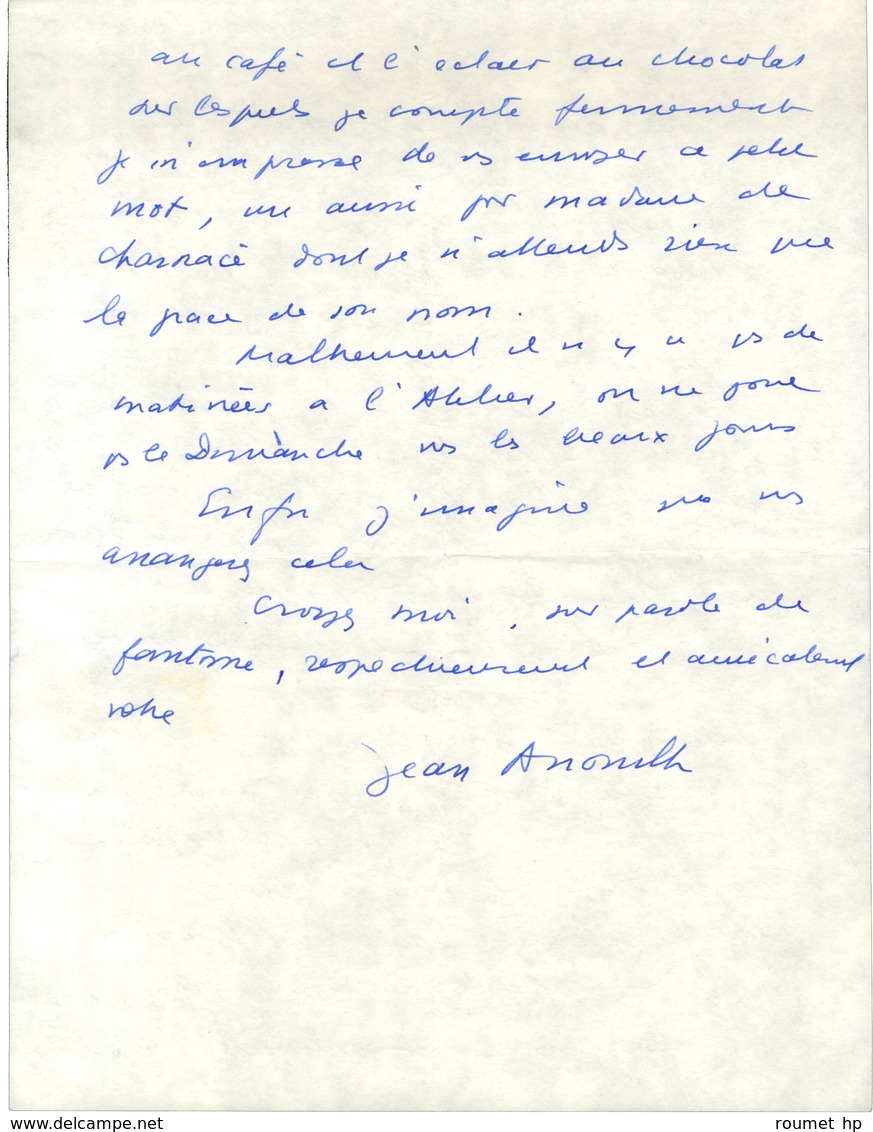 au café et l'éclair au chocolat
sur lesquels je compte fermement
je m'empresse de vs envoyer ce petit
mot, un aussi pr madame de
Charnacé dont je n'attends rien que
la grace de son nom.
Malheureusement il n'y a ps de
matinées a l'Atelier, on ne joue
ps le Dimanche ... les beaux jours
Enfin j'imagine que vs
arrangerez cela
Croyez moi, sur parole de
fantome, respectueusement et amicalement
votre
Jean Anouilh
www.delcampe.net
roumet hp